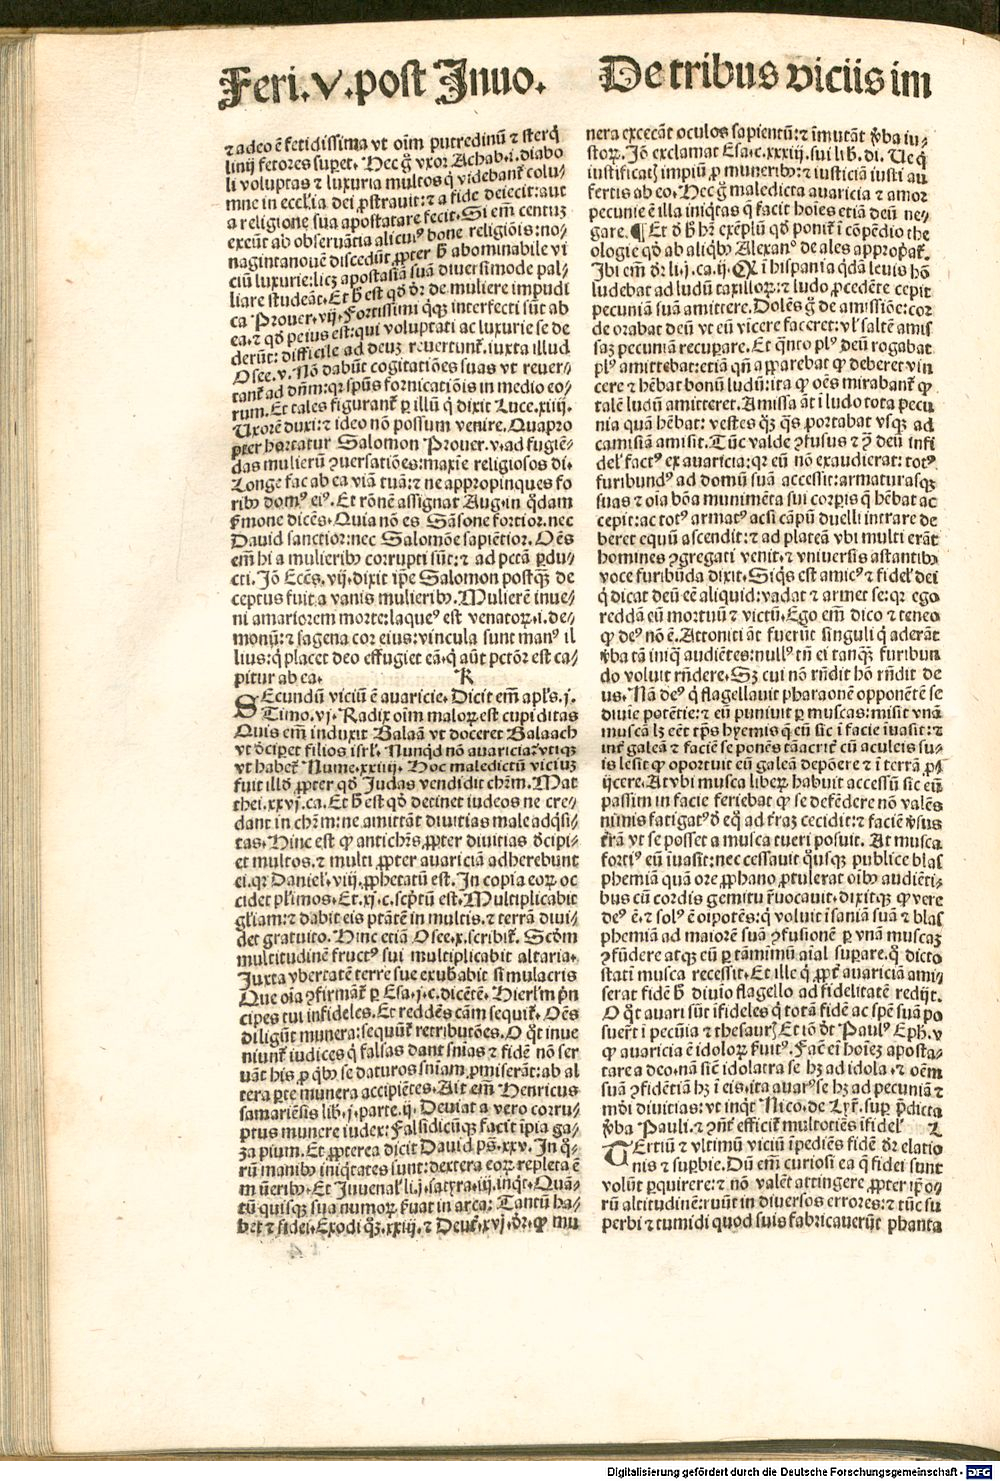 Feri. V. post Inuo. De tribus viciis im
⁊ adeo ē fetidissima vt oīm putredinū ⁊ sterq̄
linij fetores suꝑet. Hec ḡ vxor Achab .i. diabo
li voluptas ⁊ luxuria multos q̇ videbant̄ colu/
mne in eccl̄ia dei ꝓstrauit: ⁊ a fide deiecit: aut
a religione sua apostatare fecit. Si em̄ centuʒ
exeūt ab obseruātia alicui⁹ bone religiōis: no/
nagintanouē discedūt ꝓpter h̄ abominabile vi
ciū luxurie: licʒ apostasiā suā diuersimode pal/
liare studeāt. Et h̄ est qd̄ dr̄ de muliere impudi
ca Prouer. vij. Fortissimi q̇qʒ interfecti sūt ab
ea. ⁊ qd̄ peius est: qui voluptati ac luxurie se de
derūt: difficile ad deuʒ reuertunt̄. iuxta illud
Osee. v. Nō dabūt cogitatiōes suas vt reuer/
tant̄ ad dn̄m: qr sp̄us fornicatiōis in medio eo/
rum. Et tales figurant̄ ꝑ illū q̇ dixit Luce. xiiij.
Uxorē duxi: ⁊ ideo nō possum venire. Quapro
pter hortatur Salomon Prouer. v. ad fugiē/
das mulierū ꝯuersatiōes: maxīe religiosos di.
Longe fac ab ea viā tuā: ⁊ ne appropinques fo
ribꝰ dom⁹ ei⁹. Et rōnē assignat Aug. in q̇dam
ẜmone dicēs. Quia nō es Sāsone fortior. nec
Dauid sanctior: nec Salomōe sapiētior. Oēs
em̄ hi a mulieribꝰ corrupti sūt: ⁊ ad pctā ꝑdu/
cti. Jō Eccs̄. vij. dixit ip̄e Salomon postq̄ʒ de
ceptus fuit a vanis mulieribꝰ. Mulierē inue/
ni amariorem morte: laque⁹ est venatoꝝ .i. de/
monū: ⁊ sagena cor eius: vincula sunt man⁹ il
lius: q̇ placet deo effugiet eā. q̇ aūt pctōr est ca/
pitur ab ea. K
SEcundū viciū ē auaricie. Dicit em̄ apl̄s. j.
Timo. vj. Radix oīm maloꝝ est cupiditas
Quis em̄ induxit Balaā vt doceret Balaach
vt d̄ciꝑet filios isrl̄. Nunqd nō auaricia? vtiqʒ
vt habet̄ Nume. xxiiij. Hoc maledictū viciuʒ
fuit illd̄ ꝓpter qd̄ Judas vendidit chr̄m. Mat
thei. xxvj. ca. Et h̄ est qd̄ detinet iudeos ne cre/
dant in chr̄m: ne amittāt diuitias male adq̇si/
tas. Hinc est ꝙ antichr̄s ꝓpter diuitias d̄cipi/
et multos. ⁊ multi ꝓpter auariciā adherebunt
ei. qr Daniel̄. viij. ꝓphetatū est. In copia eoꝝ oc
cidet pl̄imos. Et. xj. c. scp̄tū est. Multiplicabit
gl̄iam: ⁊ dabit eis ptātē in multis. ⁊ terrā diui/
det gratuito. Hinc etiā Osee. x. scribit̄. Scd̄m
multitudinē fruct⁹ sui multiplicabit altaria.
Juxta vbertatē terre sue exub̄abit simulacris
Que oīa ꝯfirmāt̄ ꝑ Esa. j. c. dicētē. Hierl̄m p̄n
cipes tui infideles. Et reddēs cām sequit̄. Oēs
diligūt munera: sequūt̄ retributōes. O qt inue
niunt̄ iudices q̇ falsas dant sn̄ias ⁊ fidē nō ser
uāt his ꝓ q̇bꝰ se daturos sn̄iam ꝓmiserāt: ab al
tera ꝑte munera accipiētes. Ait em̄ Henricus
samariēsis lib. j. parte. ij. Deuiat a vero corru/
ptus munere iudex: Falsidicusqʒ facit īpia ga/
za pium. Et ꝓpterea dicit Dauid ps̄. xxv. In q̇/
rū manibꝰ iniq̇tates sunt: dextera eoꝝ repleta ē
mūeribꝰ. Et Juuenal̄ li. j. satyra. iij. inqt. Quā/
tū quisqʒ sua numoꝝ ẜuat in arca: Tantū ha/
bet ⁊ fidei. Exodi q̇ʒ. xxiij. ⁊ Deut̄. xvj. dr̄. ꝙ mu
nera excecāt oculos sapientū: ⁊ īmutāt v̄ba iu/
stoꝝ. Jō exclamat Esa. c. xxxiij. sui lib. di. Ue q̇
iustificatis impiū ꝓ muneribꝰ: ⁊ iusticiā iusti au
fertis ab eo. Hec ḡ maledicta auaricia ⁊ amor
pecunie ē illa iniq̇tas q̄ facit hoīes etiā deū ne/
gare. ¶ Et d̄ h̄ hr̄ exēplū qd̄ ponit̄ ī cōpēdio the
ologie qd̄ ab aliq̇bꝰ Alexan° de ales appropat̄.
Ibi em̄ dr̄ li. j. ca. ij. Q ī hispania q̇dā leuis hō
ludebat ad ludū taxilloꝝ: ⁊ ludo ꝓcedēte cepit
pecuniā suā amittere. Dolēs ḡ de amissiōe: cor
de orabat deū vt eū vīcere faceret: vl̄ saltē amis
saʒ pecuniā recuꝑare. Et q̇nto pl⁹ deū rogabat
pl⁹ amittebat: etiā qn̄ apparebat ꝙ deberet vin
cere ⁊ hēbat bonū ludū: ita ꝙ oēs mirabant̄ ꝙ
talē ludū amitteret. Amissa āt ī ludo tota pecu
nia quā hēbat: vestes q̇ʒ q̄s portabat vsqʒ ad
camisiā amisit. Tūc valde ꝯfusus ⁊ ꝯͣ deū infi
del̄ fact⁹ ex auaricia: qr eū nō exaudierat: tot⁹
furibund⁹ ad domū suā accessit: armaturasqʒ
suas ⁊ oīa bōa munimēta sui corꝑis q̄ hēbat ac
cepit: ac tot⁹ armat⁹ acsi cāpū duelli intrare de
beret equū ascendit: ⁊ ad plateā vbi multi erāt
homines ꝯgregati venit. ⁊ vniuersis astantibꝰ
voce furibūda dixit. Siq̇s est amic⁹ ⁊ fidel̄ dei
q̇ dicat deū eē aliquid: vadat ⁊ armet se: qr ego
reddā eū mortuū ⁊ victū. Ego em̄ dico ⁊ teneo
ꝙ de⁹ nō ē. Attoniti āt fuerūt singuli q̇ aderāt
v̄ba tā iniq̄ audiētes: null⁹ tn̄ ei tanqʒ furibun
do voluit rn̄dere. Sʒ cui nō rn̄dit hō rn̄dit de
us. Nā de⁹ q̇ flagellauit pharaonē opponētē se
diuīe potētie: ⁊ eū puniuit ꝑ muscas: misit vnā
muscā lʒ eēt tp̄s hyemis q̄ eū sic ī facie īuasit: ⁊
int̄ galeā ⁊ faciē se ponēs tā acrit̄ eū aculeis su/
is lesit ꝙ oportuit eū galeā depōere ⁊ ī terrā ꝓ/
ijcere. At vbi musca liberꝝ habuit accessū sic eū
passim in facie feriebat ꝙ se defēdere nō valēs
nimis fatigat⁹ d̄ eq̇ ad t̄raʒ cecidit: ⁊ faciē v̄sus
t̄rā vt se posset a musca tueri posuit. At musca
forti⁹ eū īuasit: nec cessauit q̇usqʒ publice blas
phemiā quā ore ꝓphano ꝓtulerat oībꝰ audiēti/
bus cū cordis gemitu r̄uocauit. dixitqʒ ꝙ vere
de⁹ ē. ⁊ sol⁹ ē oīpotēs: q̇ voluit īsaniā suā ⁊ blas
phemiā ad maiorē suā ꝯfusionē ꝑ vnā muscaʒ
ꝯfūdere atqʒ eū ꝑ tā minimū aīal suꝑare. qo dicto
statī musca recessit. Et ille q̇ ꝓpt̄ auariciā ami/
serat fidē h̄ diuīo flagello ad fidelitatē redijt.
O qt auari sūt īfideles q̇ totā fidē ac spē suā po
suer̄t ī pecūia ⁊ thesaur̄ Et iō dt̄ Paul⁹ Eph. v
ꝙ auaricia ē idoloꝝ ẜuit⁹. Facē eī hoīeʒ aposta/
tare a deo. nā sic̄ idolatra se hʒ ad idola. ⁊ oēm
suā ꝯfidētiā hʒ ī eis. ita auar⁹ se hʒ ad pecuniā ⁊
mōi diuitias: vt inqt Nico. de Lyr̄. suꝑ p̄dicta
v̄ba Pauli. ⁊ ꝯn̄t̄ efficit̄ multotiēs īfidel̄ L
TErtiū ⁊ vltimū viciū īpediēs fidē dr̄ elatio
nis ⁊ suꝑbie. Dū em̄ curiosi ea q̄ fidei sunt
volūt ꝑquirere: ⁊ nō valēt attingere ꝓpter ip̄o/
rū altitudinē: ruūt in diuersos errores: ⁊ tūc su
perbi ⁊ tumidi quod suis fabricauerūt phanta
Digitalisierung gefördert durch die Deutsche Forschungsgemeinschaft - DFG